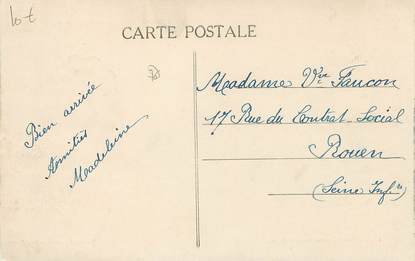 lot
CARTE POSTALE
Bien arrivée
Amitiés
Madeleine
Madame Vve Faucon
17 Rue du Contrat-Social
Rouen
(Seine Infre)